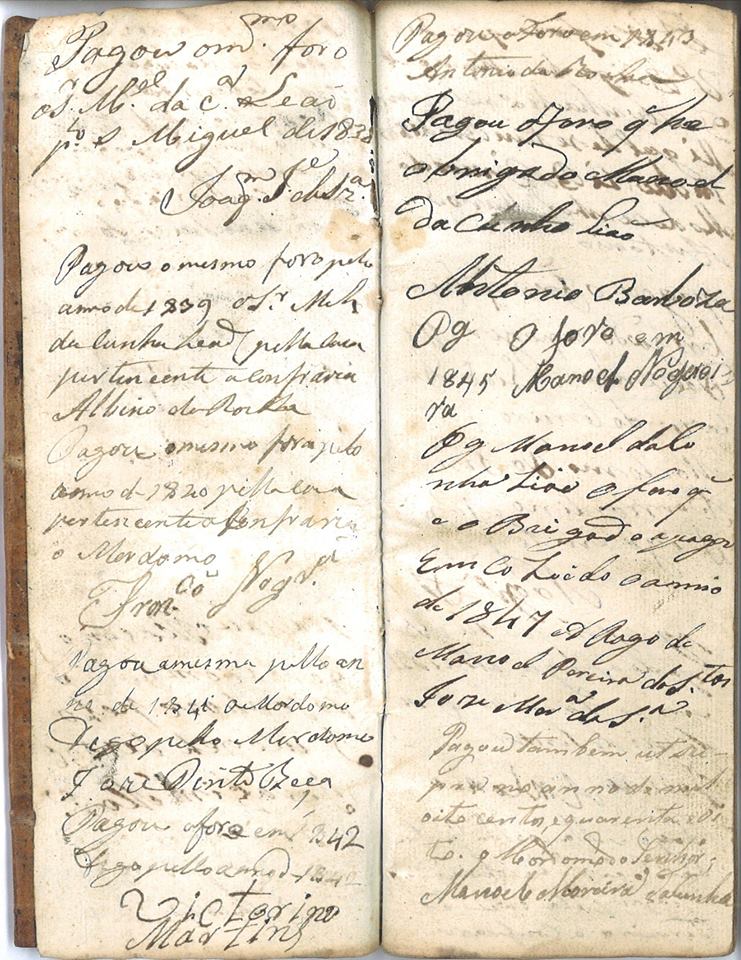 Pagou o m.mo foro
o Sr. M.el da C.a Leaõ
p.lo S Miguel de 1838
Joaq.m J.e de Sz.a
Pagou o mesmo foro pelo
anno de 1839 o Sr. Mel
da Cunha Leaõ pella
pertencente a Confraria
Albino da Rocha
Pagou o mesmo foro pelo
anno de 1840 pella
pertencente a Confraria
o Mordomo
Fran.co Nogr.a
Pagou a mesma pello an
no de 1841 o Mordomo
Digo pello Mordomo
Joze Pinto Beça
Pagou o foro em 1842
Digo pello anno d 1842
Victorino
Martins
Pagou o Foro em 1843
Antonio da Rocha
Pagou o Foro q he
obrigado Manoel
da Cunha Liaõ
Antonio Barboza
Pg O foro em
1845 Manoel Nogei
ra
Pg Manoel da Co
nha Liaõ o foro q
e o Brigado a pagar
Em Co
de 1847 A Rogo de
Manoel Pereira dos S.tos
Joze Mor.a da S.a
Pagou tambem
no anno de mil
oito centos quarenta e oi
to. o Mordomo do Senhor
Manoel Moreira da Cunha